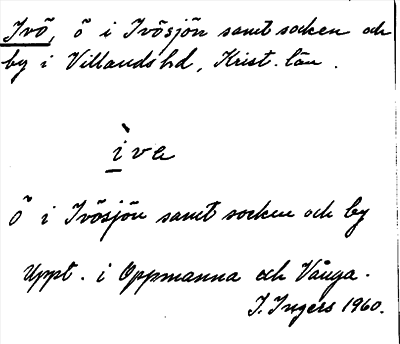 Ivö, ö i Ivösjön samt socken och
by i Villands hd, Krist. län.
ìva
Ö i Ivösjön samt socken och by
Uppt. i Oppmanna och Vånga.
I. Ingers 1960.